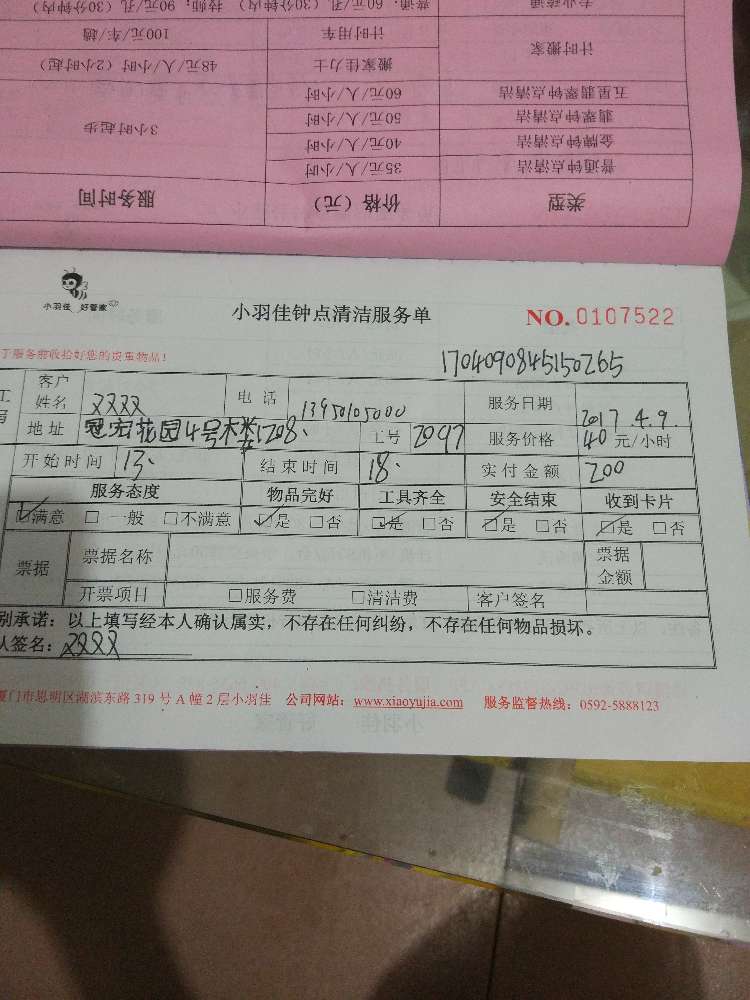 专业疏通 普通:60元/孔(30分钟内) 技师:90元/孔(30分钟内)
计时搬家 计时用车 100元/车/趟
搬家佳力士 48元/人/小时(2小时起)
五星翡翠钟点清洁 60元/人/小时
翡翠钟点清洁 50元/人/小时 3小时起步
金牌钟点清洁 40元/人/小时
普通钟点清洁 35元/人/小时
类型 价格(元) 服务时间
小羽佳 好管家
小羽佳钟点清洁服务单 NO.0107522
了服务前收拾好您的贵重物品!
1704090845150265
客户姓名 XXXX 电话 13950105000 服务日期 2017.4.9.
地址 冠宏花园4号楼1208. 工号 2097 服务价格 40元/小时
开始时间 13. 结束时间 18. 实付金额 200
服务态度 物品完好 工具齐全 安全结束 收到卡片
☑满意 □一般 □不满意 ☑是 □否 ☑是 □否 ☑是 □否 ☑是 □否
票据 票据名称 票据金额
开票项目 □服务费 □清洁费 客户签名
别承诺:以上填写经本人确认属实,不存在任何纠纷,不存在任何物品损坏。
人签名:XXXX
厦门市思明区湖滨东路319号A幢2层小羽佳 公司网站:www.xiaoyujia.com 服务监督热线:0592-5888123